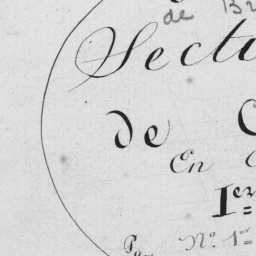 de Br
Secti
de C
En
1er
Par No. 1er